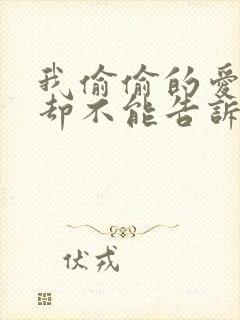 我偷偷的愛
却不能告訴
伏戎